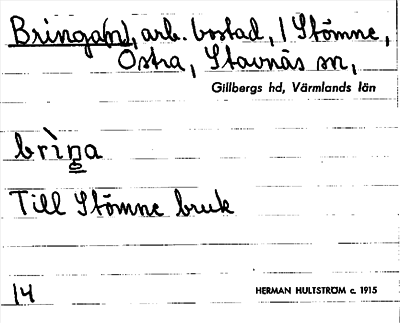 Bringa(n), arb. bostad, / Stömne,
Östra, Stavnäs sn,
Gillbergs hd, Värmlands län
brìŋa
Till Stömne bruk
14
HERMAN HULTSTRÖM c. 1915